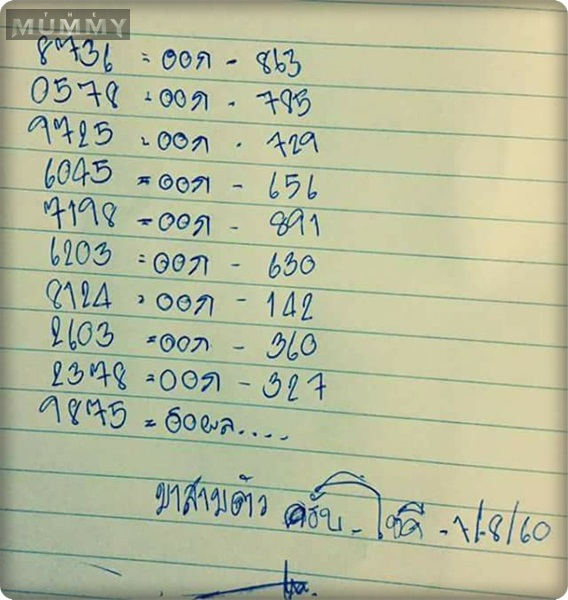 THE
MUMMY
8736 = ออก - 863
0578 = ออก - 785
9725 = ออก - 729
6045 = ออก - 656
7198 = ออก - 891
6203 = ออก - 630
8124 = ออก - 142
2603 = ออก - 360
2378 = ออก - 327
9875 = รอผล....
มาสามตัว ครับ - โชคดี - 7/8/60